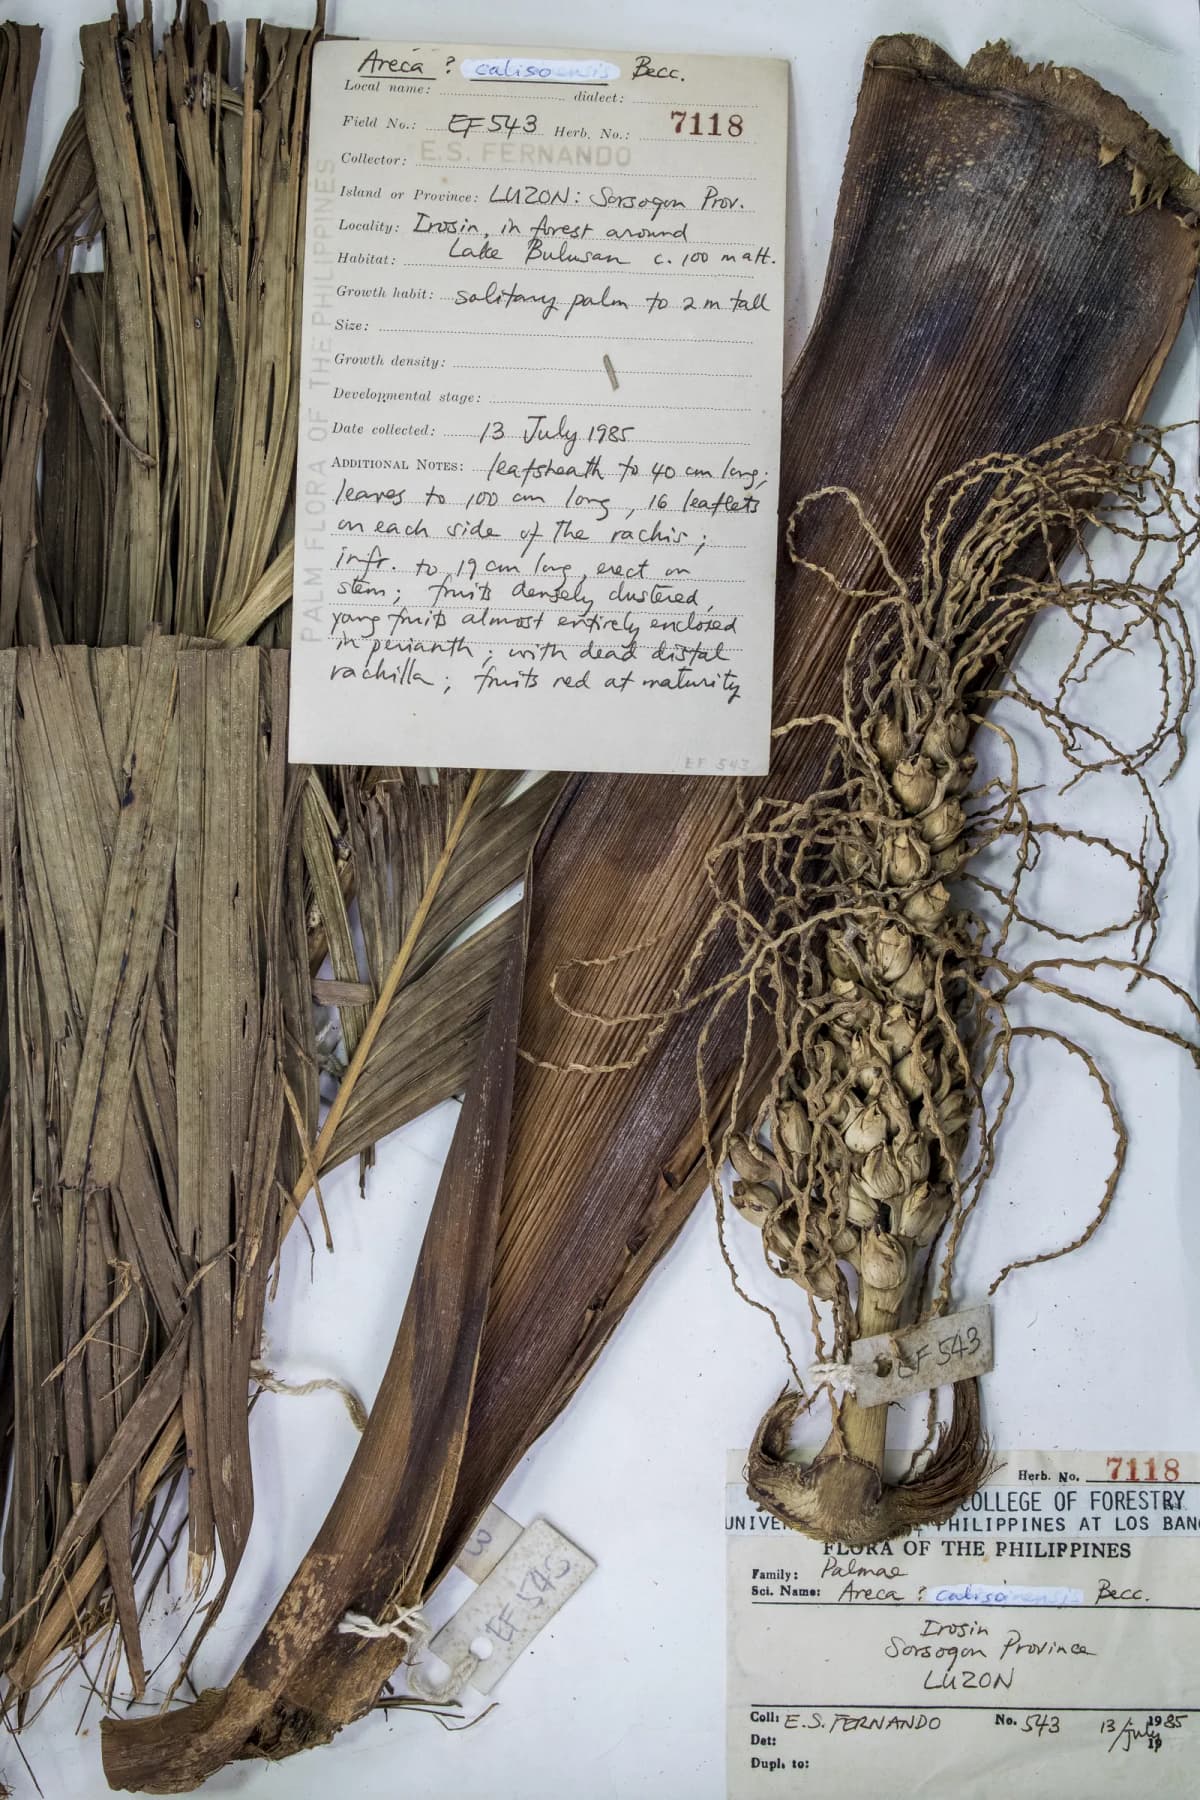 Areca ? calisoensis Becc.
Local name: dialect:
Field No.: EF 543 Herb. No.: 7118
Collector: E.S. FERNANDO
Island or Province: LUZON: Sorsogon Prov.
Locality: Irosin, in forest around
Habitat: Lake Bulusan c. 100 m alt.
Growth habit: solitary palm to 2 m tall
Size:
Growth density:
Developmental stage:
Date collected: 13 July 1985
ADDITIONAL NOTES: leafsheath to 40 cm long;
leaves to 100 cm long, 16 leaflets
on each side of the rachis;
infr. to 19 cm long, erect on
stem; fruits densely clustered,
young fruits almost entirely enclosed
in perianth; with dead distal
rachilla; fruits red at maturity
EF 543
PALM FLORA OF THE PHILIPPINES
EF 543
EF 543
3
Herb. No. 7118
COLLEGE OF FORESTRY
PHILIPPINES AT LOS
FLORA OF THE PHILIPPINES
Family: Palmae
Sci. Name: Areca ? Becc.
Irosin
Sorsogon Province
LUZON
Coll: E.S. FERNANDO No. 543 13/July 1985
Det: 19
Dupl. to: